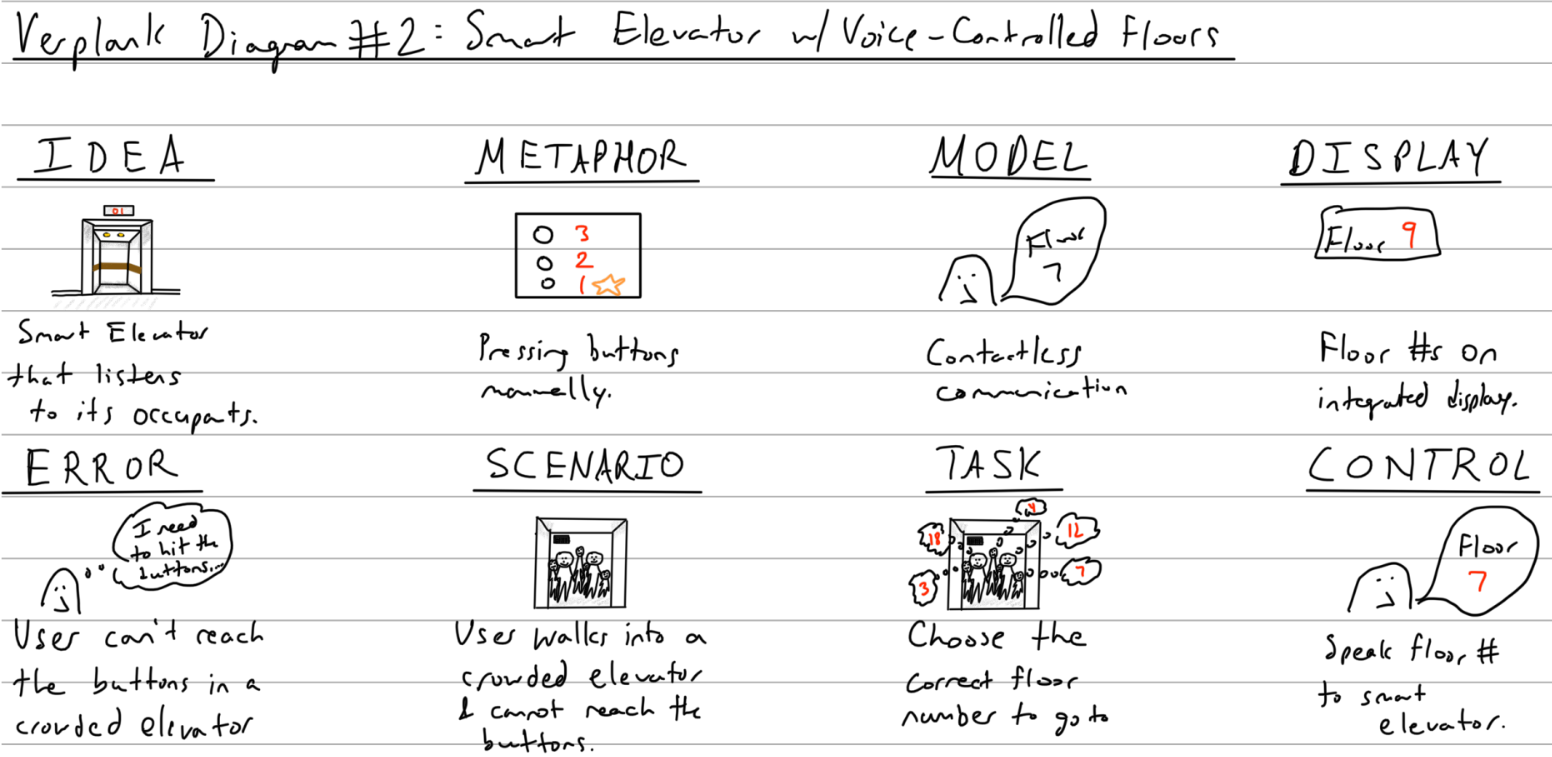 Verplank Diagram #2: Smart Elevator w/ Voice-Controlled Floors
IDEA
01
Smart Elevator
that listens
to its occupants.
METAPHOR
3
2
1
Pressing buttons
manually.
MODEL
Floor
7
Contactless
communication
DISPLAY
Floor 9
Floor #s on
integrated display.
ERROR
I need
to hit the
buttons...
User can't reach
the buttons in a
crowded elevator
SCENARIO
User walks into a
crowded elevator
& cannot reach the
buttons.
TASK
4
18
12
3
7
Choose the
correct floor
number to go to
CONTROL
Floor
7
Speak floor #
to smart
elevator.